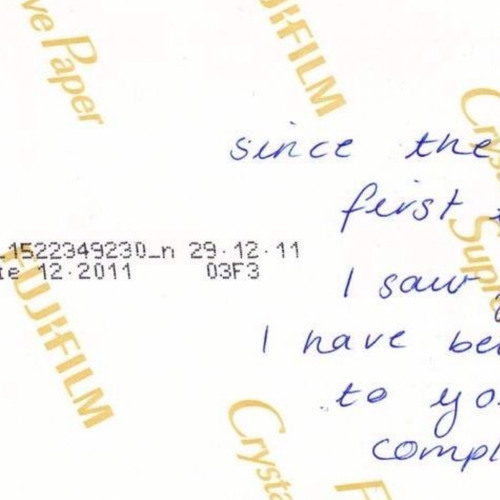 ve Paper
FUJIFILM
since the
first
1522349230_n 29.12.11
ie 12.2011 03F3
I saw
FUJIFILM
I have be
to yo
compl
Crysta